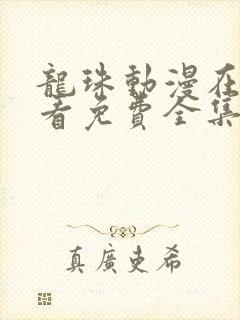 龍珠動漫在
看免費全集
真廣史希